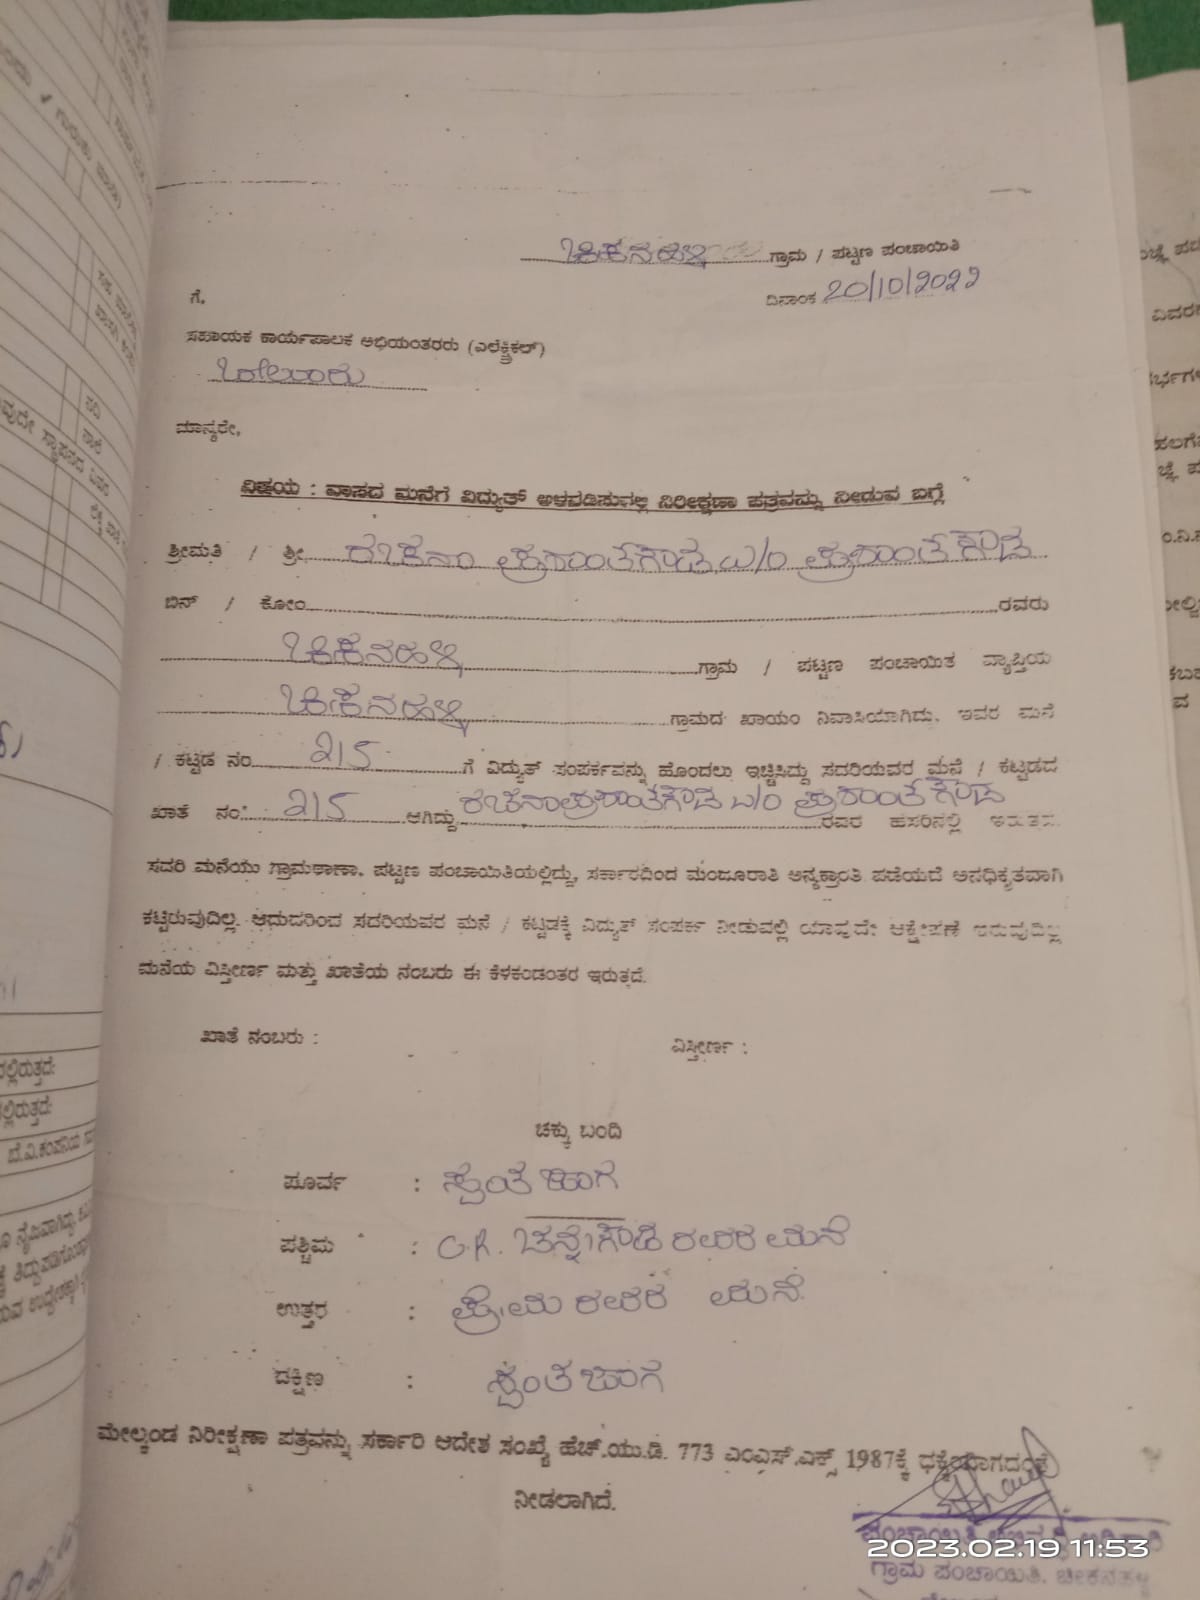 ಚೀಕನಹಳ್ಳಿ ಗ್ರಾಮ / ಪಟ್ಟಣ ಪಂಚಾಯಿತಿ
ದಿನಾಂಕ 20/10/2022
ಗೆ,
ಸಹಾಯಕ ಕಾರ್ಯಪಾಲಕ ಅಭಿಯಂತರರು (ಎಲೆಕ್ಟ್ರಿಕಲ್)
ಮಾನ್ಯರೇ,
ವಿಷಯ : ವಾಸದ ಮನೆಗೆ ವಿದ್ಯುತ್ ಅಳವಡಿಸುವಲ್ಲಿ ನಿರೀಕ್ಷಣಾ ಪತ್ರವನ್ನು ನೀಡುವ ಬಗ್ಗೆ
ಶ್ರೀಮತಿ / ಶ್ರೀ ರಚನಾ ಪ್ರಶಾಂತಗೌಡ w/o ಪ್ರಶಾಂತಗೌಡ
ಬಿನ್ / ಕೋಂ ರವರು
ಚೀಕನಹಳ್ಳಿ ಗ್ರಾಮ / ಪಟ್ಟಣ ಪಂಚಾಯಿತ ವ್ಯಾಪ್ತಿಯ
ಚೀಕನಹಳ್ಳಿ ಗ್ರಾಮದ ಖಾಯಂ ನಿವಾಸಿಯಾಗಿದ್ದು, ಇವರ ಮನೆ
/ ಕಟ್ಟಡ ನಂ. 215 ಗೆ ವಿದ್ಯುತ್ ಸಂಪರ್ಕವನ್ನು ಹೊಂದಲು ಇಚ್ಚಿಸಿದ್ದು ಸದರಿಯವರ ಮನೆ / ಕಟ್ಟಡದ
ಖಾತೆ ನಂ. 215 ಆಗಿದ್ದು ರಚನಾಪ್ರಶಾಂತಗೌಡ w/o ಪ್ರಶಾಂತಗೌಡ ರವರ ಹೆಸರಿನಲ್ಲಿ ಇರುತ್ತದೆ.
ಸದರಿ ಮನೆಯು ಗ್ರಾಮಠಾಣಾ, ಪಟ್ಟಣ ಪಂಚಾಯಿತಿಯಲ್ಲಿದ್ದು, ಸರ್ಕಾರದಿಂದ ಮಂಜೂರಾತಿ ಅನ್ಯಕ್ರಾಂತಿ ಪಡೆಯದೆ ಅನಧಿಕೃತವಾಗಿ
ಕಟ್ಟಿರುವುದಿಲ್ಲ. ಆದುದರಿಂದ ಸದರಿಯವರ ಮನೆ / ಕಟ್ಟಡಕ್ಕೆ ವಿದ್ಯುತ್ ಸಂಪರ್ಕ ನೀಡುವಲ್ಲಿ ಯಾವುದೇ ಆಕ್ಷೇಪಣೆ ಇರುವುದಿಲ್ಲ
ಮನೆಯ ವಿಸ್ತೀರ್ಣ ಮತ್ತು ಖಾತೆಯ ನಂಬರು ಈ ಕೆಳಕಂಡಂತರ ಇರುತ್ತದೆ.
ಖಾತೆ ನಂಬರು : ವಿಸ್ತೀರ್ಣ :
ಚಕ್ಕು ಬಂದಿ
ಪೂರ್ವ : ಸ್ವಂತ ಜಾಗ
ಪಶ್ಚಿಮ : C.R. ಚನ್ನೇಗೌಡ ರವರ ಮನೆ
ಉತ್ತರ : ಪ್ರೇಮ ರವರ ಮನೆ
ದಕ್ಷಿಣ : ಸ್ವಂತ ಜಾಗ
ಮೇಲ್ಕಂಡ ನಿರೀಕ್ಷಣಾ ಪತ್ರವನ್ನು ಸರ್ಕಾರಿ ಆದೇಶ ಸಂಖ್ಯೆ ಹೆಚ್.ಯು.ಡಿ. 773 ಎಂ.ಎಸ್.ಎಕ್ಸ್ 1987ಕ್ಕೆ ಧಕ್ಕೆಯಾಗದಂತೆ
ನೀಡಲಾಗಿದೆ.
ಪಂಚಾಯಿತಿ ಅಭಿವೃದ್ಧಿ ಅಧಿಕಾರಿ
2023.02.19 11:53
ಗ್ರಾಮ ಪಂಚಾಯಿತಿ, ಚೀಕನಹಳ್ಳಿ